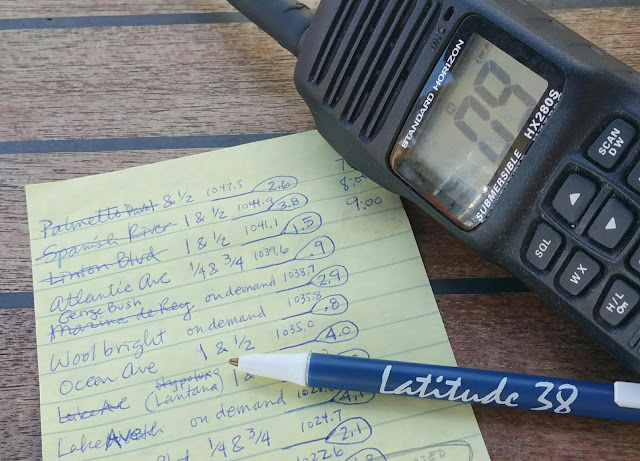 Palmetto Park & ½ 1047.5 2.6
Spanish River 1 & ½ 1044.9 3.8
Linton Blvd 1 & ½ 1041.1 1.5
Atlantic Ave ¼ & ¾ 1039.6 .9
George Bush
on demand 1038.7 2.9
Woolbright on demand 1035.8 .8
Ocean Ave 1 & ½ 1035.0 4.0
Hypoluxo
Lake Ave (Lantana) 1 &
Lake Ave on demand
¼ & ¾ 1024.7 2.1
1022.6
8:00
9:00
MIC
STANDARD HORIZON
09
SUBMERSIBLE HX280S
SCAN
DW
SQL
WX
H/L
Latitude 38